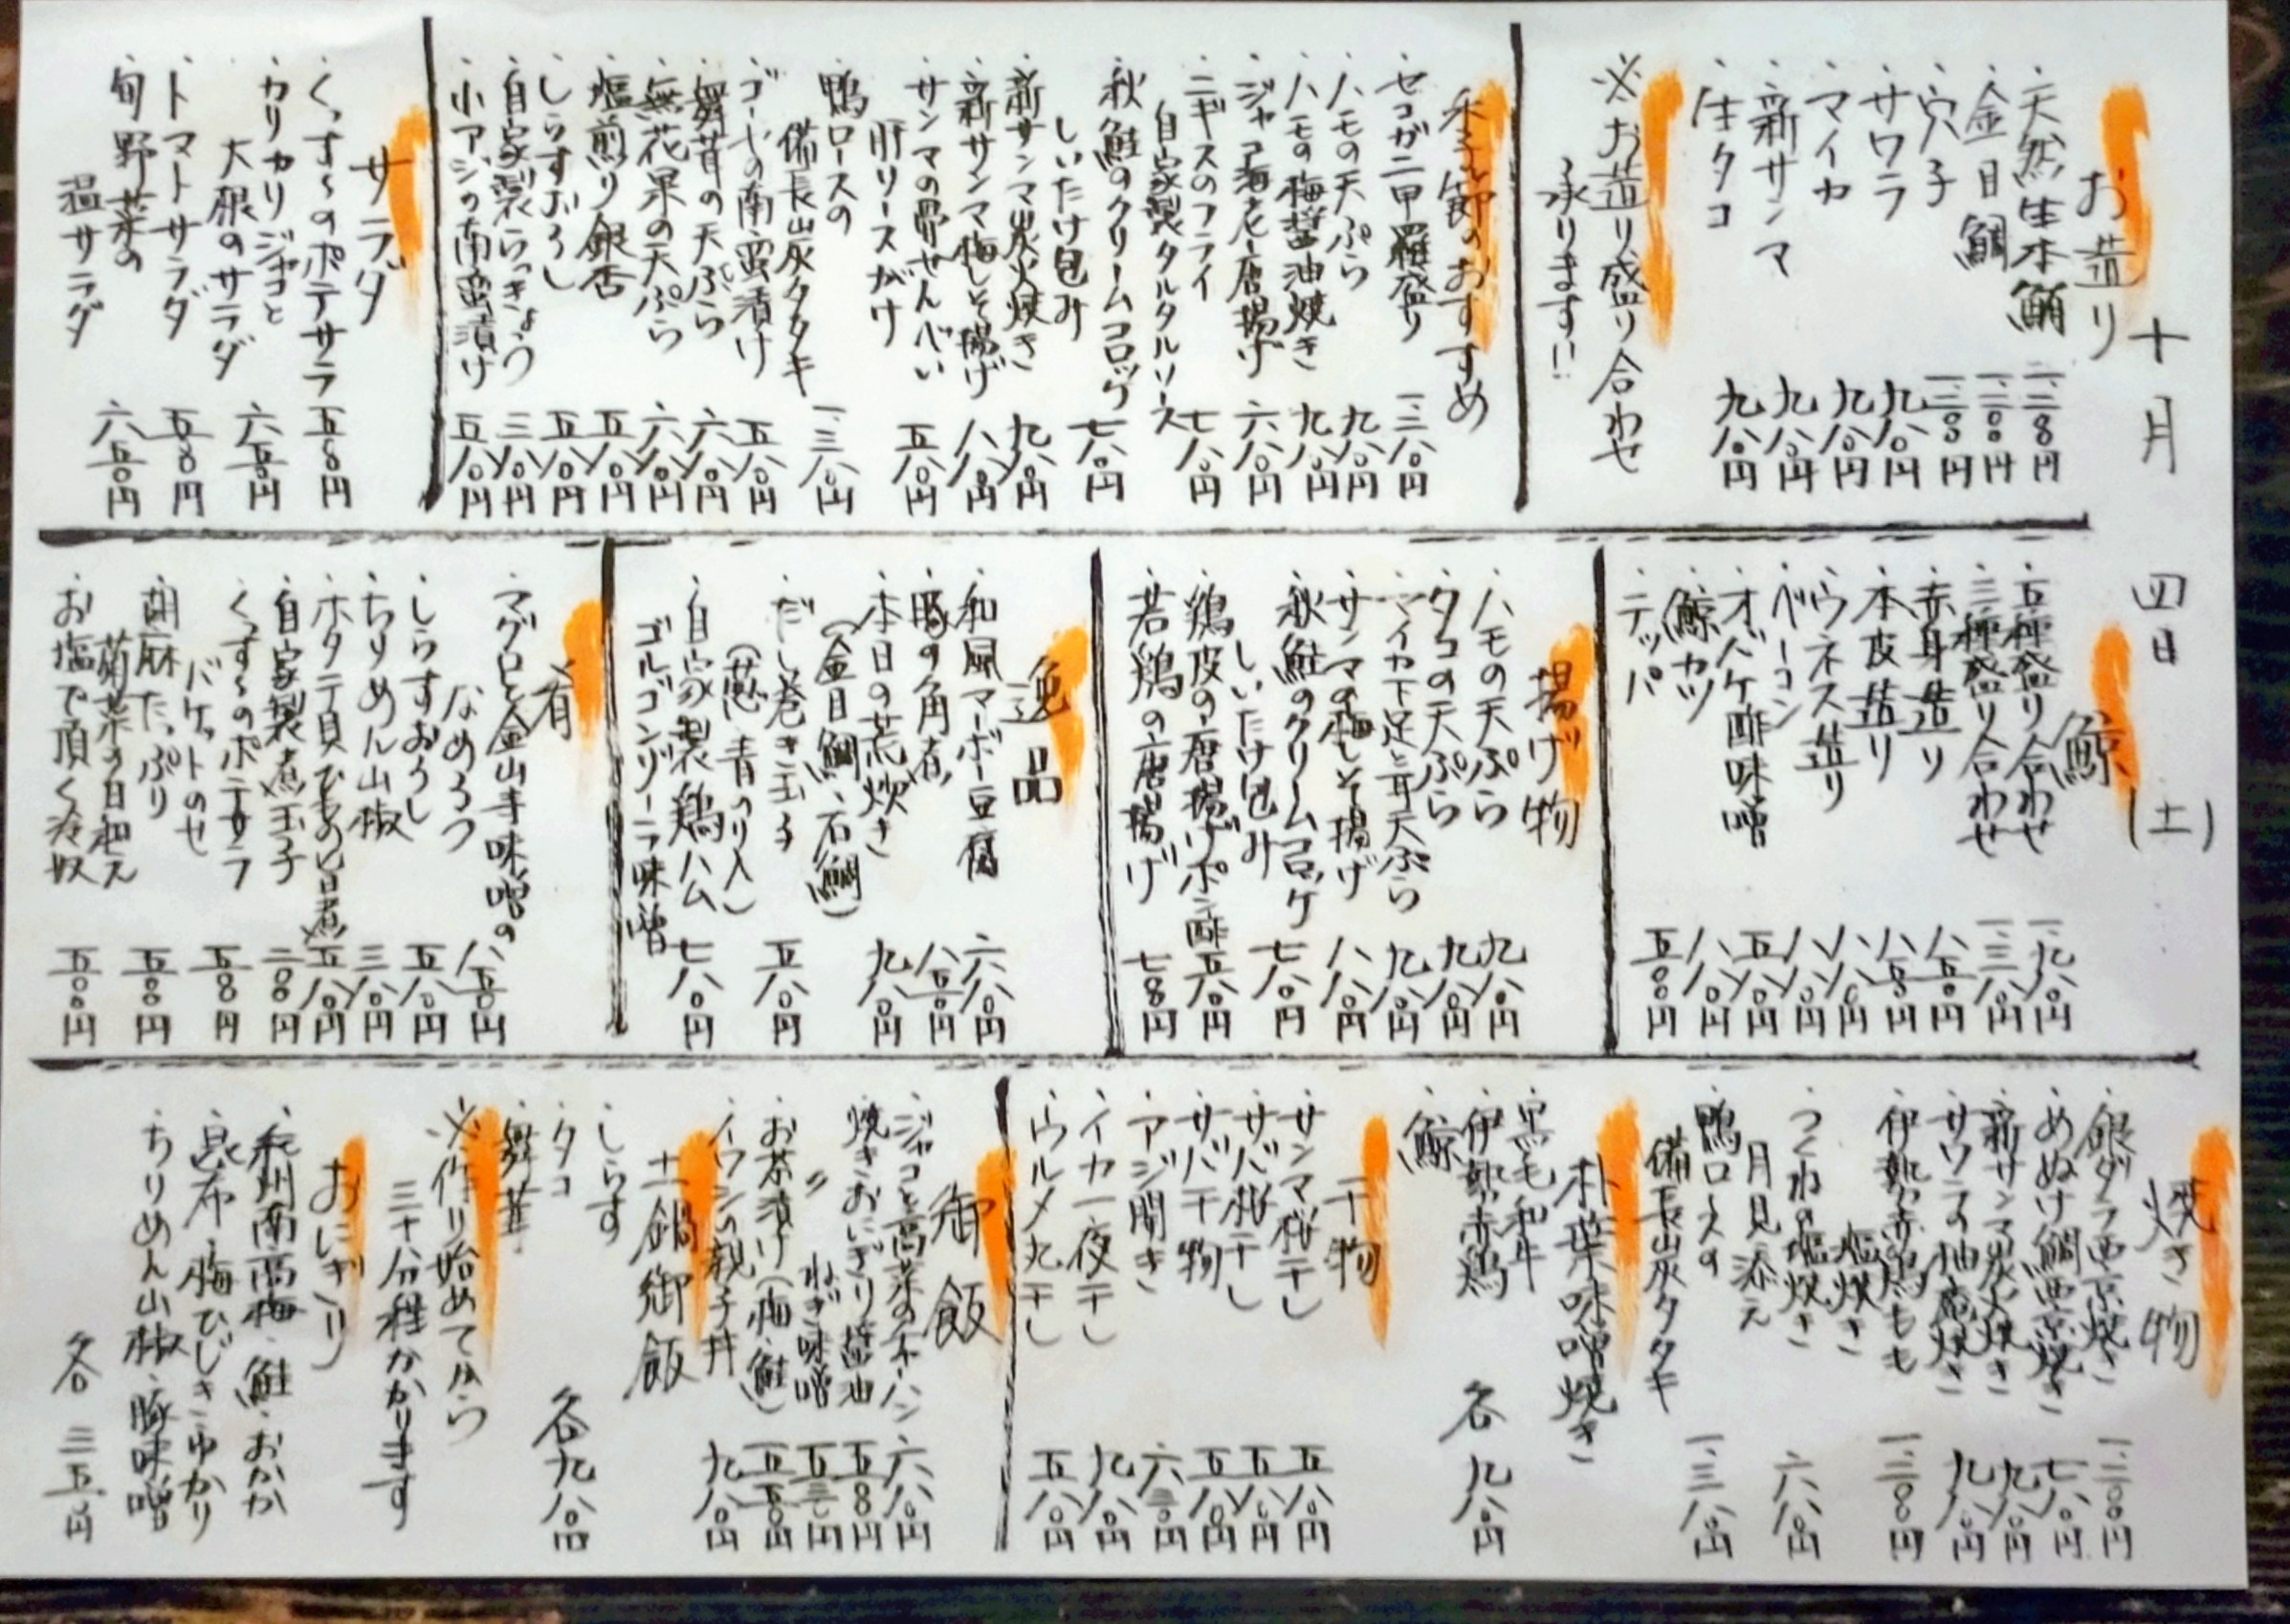 十月 四日 (土)
お造り
・天然生本鮪 二、二〇〇円
・金目鯛 一、二〇〇円
・穴子 一、三〇〇円
・サワラ 九八〇円
・マイカ 九八〇円
・新サンマ 九八〇円
・生タコ 九八〇円
※お造り盛り合わせ
承ります!!
季節のおすすめ
・セコガニ甲羅盛り 一、三八〇円
・ハモの天ぷら 九八〇円
・ハモの梅醤油焼き 九八〇円
・ジャコ海老唐揚げ 六八〇円
・ニギスのフライ
自家製タルタルソース 七八〇円
・秋鮭のクリームコロッケ
しいたけ包み 七八〇円
・新サンマ炭火焼き 九八〇円
・新サンマ梅しそ揚げ 八八〇円
・サンマの骨せんべい
肝ソースがけ 五八〇円
・鴨ロースの
備長炭タタキ 一、三八〇円
・ゴーヤの南蛮漬け 五八〇円
・舞茸の天ぷら 六八〇円
・無花果の天ぷら 六八〇円
・塩煎り銀杏 五八〇円
・しらすおろし 五八〇円
・自家製らっきょう 三八〇円
・小アジの南蛮漬け 五八〇円
サラダ
・くっす〜のポテサラ 五〇〇円
・カリカリジャコと
大根のサラダ 六五〇円
・トマトサラダ 五〇〇円
・旬野菜の
温サラダ 六五〇円
鯨
・五種盛り合わせ 一、九八〇円
・三種盛り合わせ 一、三八〇円
・赤身造り 八五〇円
・本皮造り 八五〇円
・ウネス造り 八八〇円
・ベーコン 八八〇円
・オバケ酢味噌 五八〇円
・鯨カツ 八八〇円
・テッパ 五〇〇円
揚げ物
・ハモの天ぷら 九八〇円
・タコの天ぷら 九八〇円
・マイカ下足と耳天ぷら 九八〇円
・サンマの梅しそ揚げ 八八〇円
・秋鮭のクリームコロッケ
しいたけ包み 七八〇円
・鶏皮の唐揚げポン酢 五八〇円
・若鶏の唐揚げ 七〇〇円
逸品
・和風マーボー豆腐 六八〇円
・豚の角煮 八五〇円
・本日の荒炊き
(金目鯛、石鯛) 九八〇円
・だし巻き玉子
(葱・青のり入) 五八〇円
・自家製鶏ハム
ゴルゴンゾーラ味噌 七八〇円
肴
・マグロと金山寺味噌の
なめろう 八五〇円
・しらすおろし 五八〇円
・ちりめん山椒 三八〇円
・ホタテ貝ひもの旨煮 五八〇円
・自家製煮玉子 二〇〇円
・くっす〜のポテサラ
バケットのせ 五〇〇円
・胡麻たっぷり
菊菜の白和え 五〇〇円
・お塩で頂く冷奴 五〇〇円
焼き物
・銀ダラ西京焼き 一、二〇〇円
・めぬけ鯛西京焼き 七八〇円
・新サンマ炭火焼き 九八〇円
・サワラの柚庵焼き 九八〇円
・伊勢赤鶏もも
塩焼き 一、三〇〇円
・つくねの塩焼き
月見添え 六八〇円
・鴨ロースの
備長炭タタキ 一、三八〇円
朴葉味噌焼き
・黒毛和牛
・伊勢赤鶏
・鯨
各 九八〇円
干物
・サンマ桜干し 五八〇円
・サバ桜干し 五八〇円
・サバ干物 五八〇円
・アジ開き 六三〇円
・イカ一夜干し 九八〇円
・ウルメ丸干し 五八〇円
御飯
・ジャコと高菜のチャーハン 六八〇円
・焼きおにぎり醤油 五〇〇円
・〃 ねぎ味噌 五三〇円
・お茶漬け(梅・鮭) 五五〇円
・イワシの親子丼 九八〇円
土鍋御飯
・しらす
・タコ
・舞茸
各九八〇円
※作り始めてから
三十分程かかります
おにぎり
・紀州南高梅・鮭・おかか
・昆布・梅ひじき・ゆかり
・ちりめん山椒・豚味噌
各 二五〇円